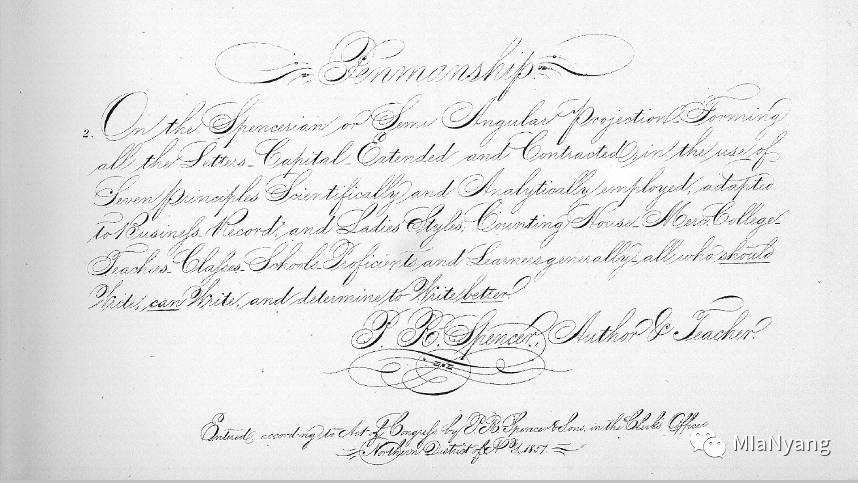 Penmanship.
2. On the Spencerian or Semi Angular Projection. Forming
all the Letters_Capital_Extended and Contracted, in the use of
Seven principles Scientifically and Analytically employed, adapted
to Business Record, and Ladies Styles. Counting House_Merc. College_
Teachers_Classes_Schools_Proficients and Learners generally_all who should
Write, can Write, and determine to Write better.
P. R. Spencer, Author & Teacher.
Entered, according to Act of Congress by P. R. Spencer & Sons, in the Clerks Office
Northern District of N.Y. 1857.
MlaNyang